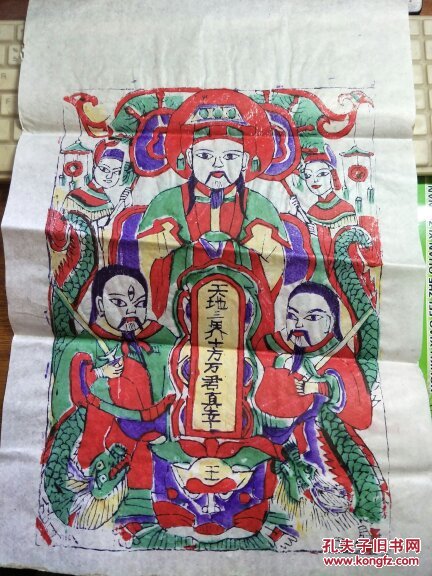 天地三界十方万君真宰
王
孔夫子旧书网